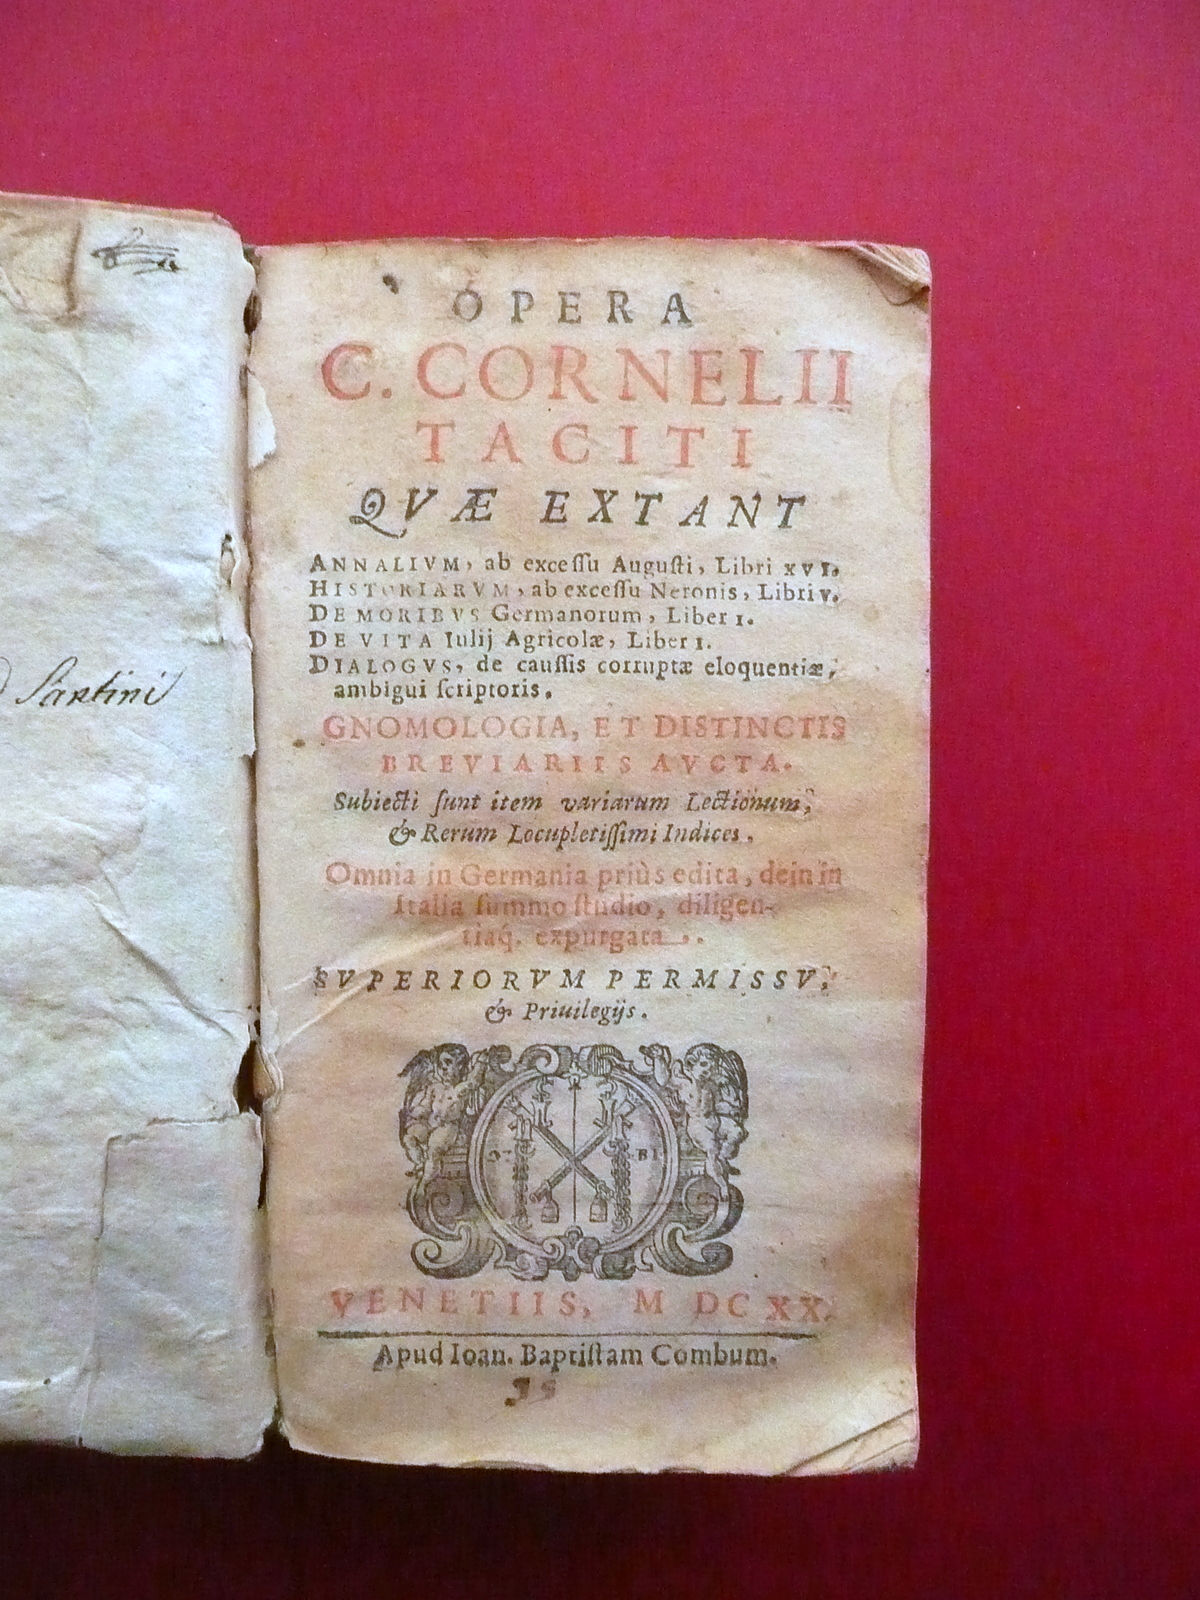 Santini
OPERA
C. CORNELII
TACITI
QVÆ EXTANT
ANNALIVM, ab exceſſu Auguſti, Libri XVI.
HISTORIARVM, ab exceſſu Neronis, Libri V.
DE MORIBVS Germanorum, Liber I.
DE VITA Iulij Agricolæ, Liber I.
DIALOGVS, de cauſſis corruptæ eloquentiæ,
ambigui ſcriptoris.
GNOMOLOGIA, ET DISTINCTIS
BREVIARIIS AVCTA.
Subiecti ſunt item variarum Lectionum,
& Rerum Locupletiſſimi Indices.
Omnia in Germania priùs edita, dein in
Italia ſummo ſtudio, diligen-
tiaq́. expurgata.
SVPERIORVM PERMISSV,
& Priuilegijs.
BI
VENETIIS, M DC XX.
Apud Ioan. Baptiſtam Combum.